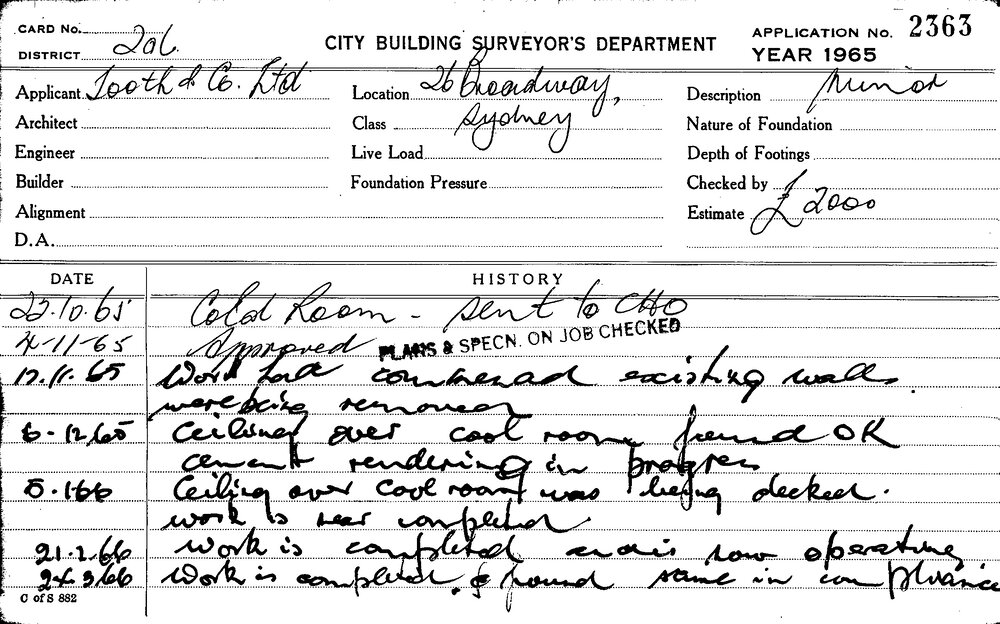 CARD No.
DISTRICT 2a6.
CITY BUILDING SURVEYOR'S DEPARTMENT
APPLICATION No. 2363
YEAR 1965
Applicant Tooth & Co. Ltd
Location 26 Broadway,
Description Minor
Architect
Class Sydney
Nature of Foundation
Engineer
Live Load
Depth of Footings
Builder
Foundation Pressure
Checked by
Alignment
Estimate £2000
D.A.
DATE HISTORY
22.10.65 Cold Room - sent to CHO
4-11-65 Approved PLANS & SPECN. ON JOB CHECKED
17.11.65 Work had commenced existing walls
were being removed
6.12.65 Ceiling over cool room found OK
cement rendering in progress
5.1.66 Ceiling over cool room was being decked.
work is near completed.
21.2.66 Work is completed and is now operating
24.3.66 Work is completed & found same in compliance
C of S 882